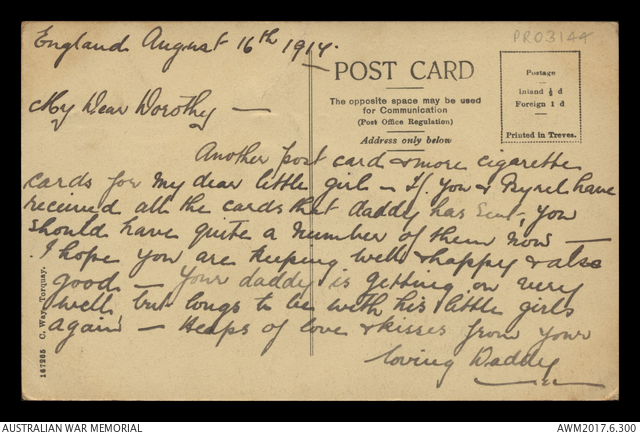 England August 16th 1917.
PRO3144
POST CARD
The opposite space may be used
for Communication
(Post Office Regulation)
Address only below
Postage
Inland ½ d
Foreign 1 d
Printed in Treves.
My Dear Dorothy —
Another post card & more cigarette
cards for my dear little girl — If you & have
received all the cards that daddy has sent, you
should have quite a number of them now —
I hope you are keeping well & happy & also
good — Your daddy is getting on very
well, but longs to be with his little girls
again — Heaps of love & kisses from your
loving Daddy
167265 C. Way, Torquay.
AUSTRALIAN WAR MEMORIAL
AWM2017.6.300